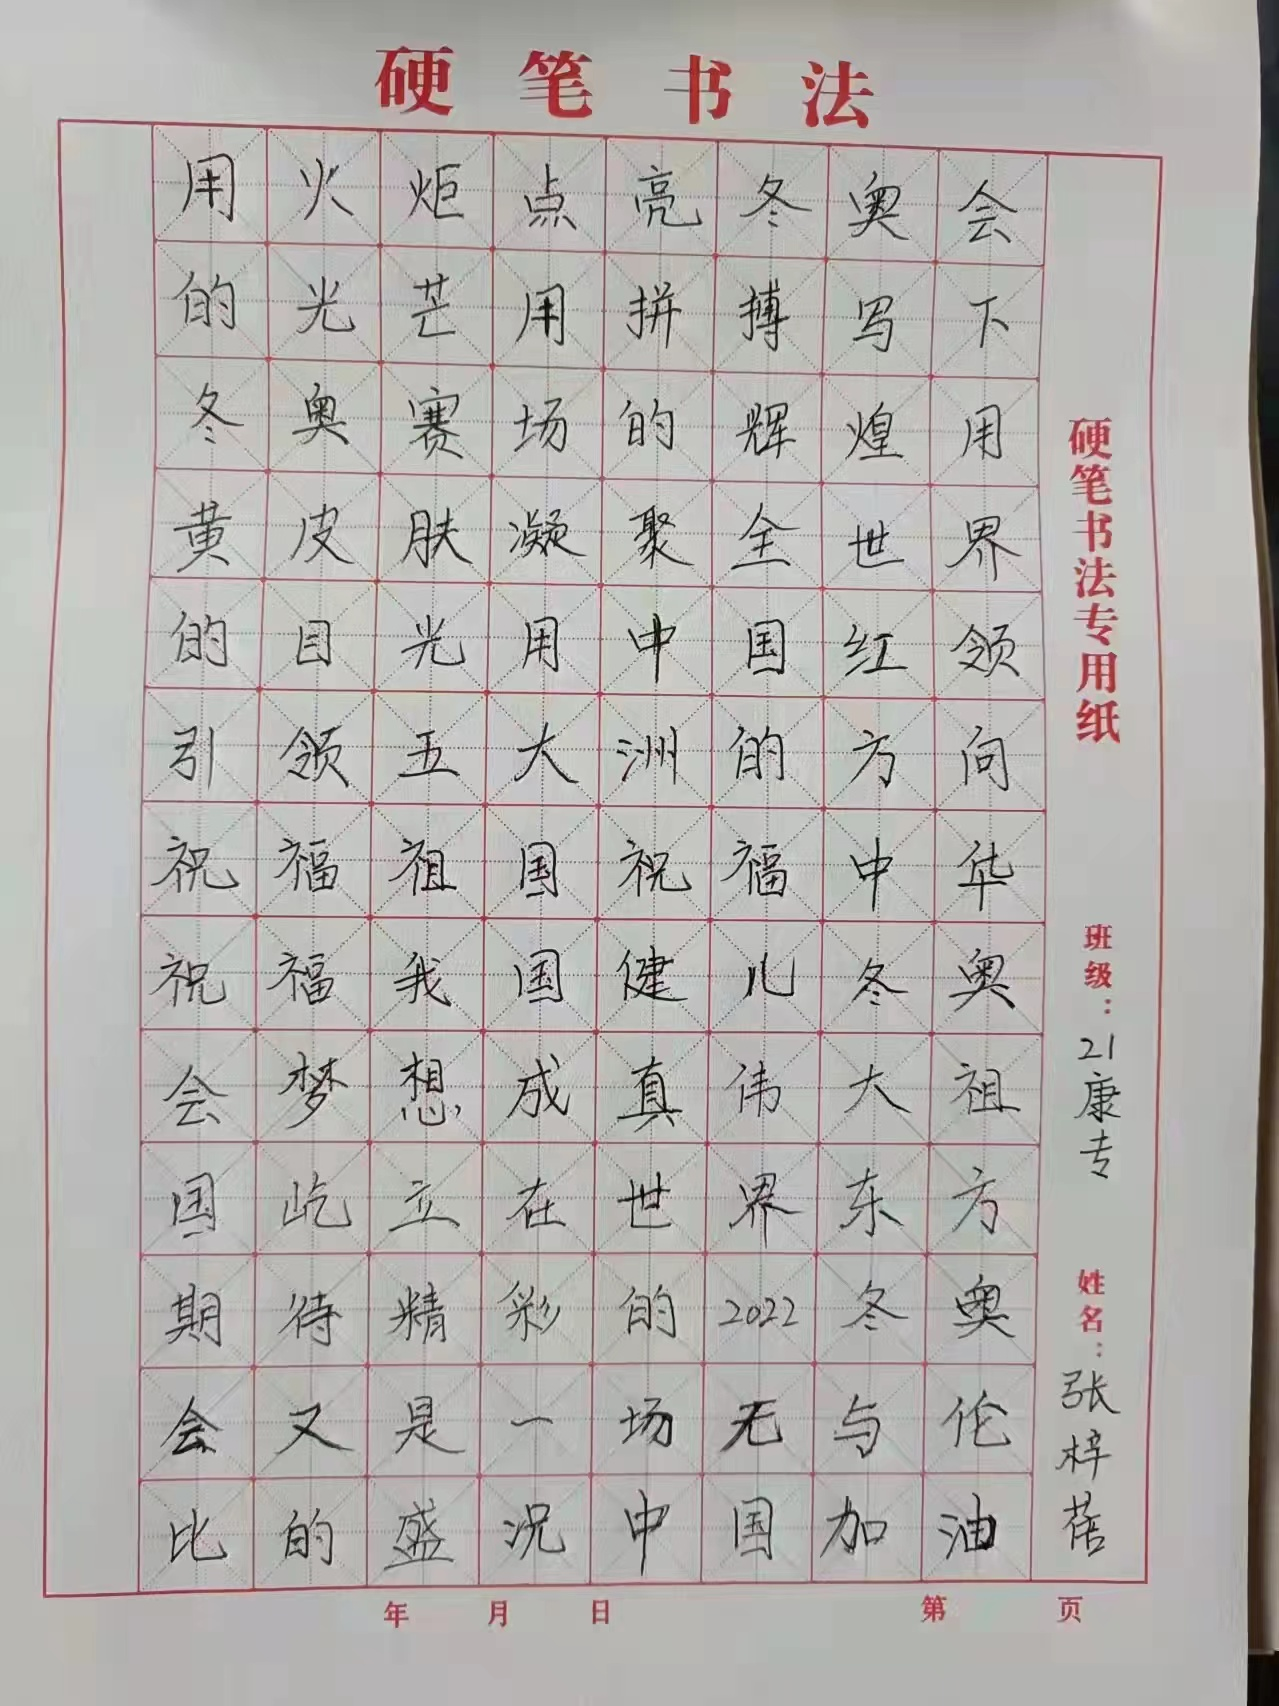 硬笔书法
用火炬点亮冬奥会
的光芒用拼搏写下
冬奥赛场的辉煌用
黄皮肤凝聚全世界
的目光用中国红领
引领五大洲的方向
祝福祖国祝福中华
祝福我国健儿冬奥
会梦想成真伟大祖
国屹立在世界东方
期待精彩的2022冬奥
会又是一场无与伦
比的盛况中国加油
硬笔书法专用纸
班级：21康专
姓名：张梓蓓
年 月 日
第 页